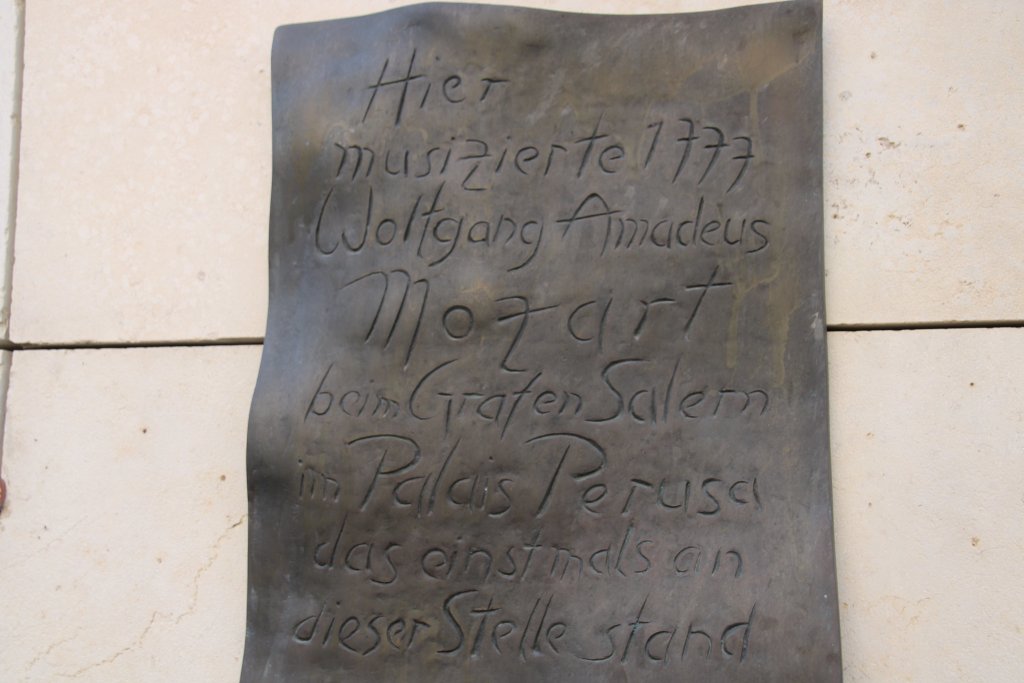 Hier
musizierte 1777
Wolfgang Amadeus
Mozart
beim Grafen Salern
im Palais Perusa
das einstmals an
dieser Stelle stand